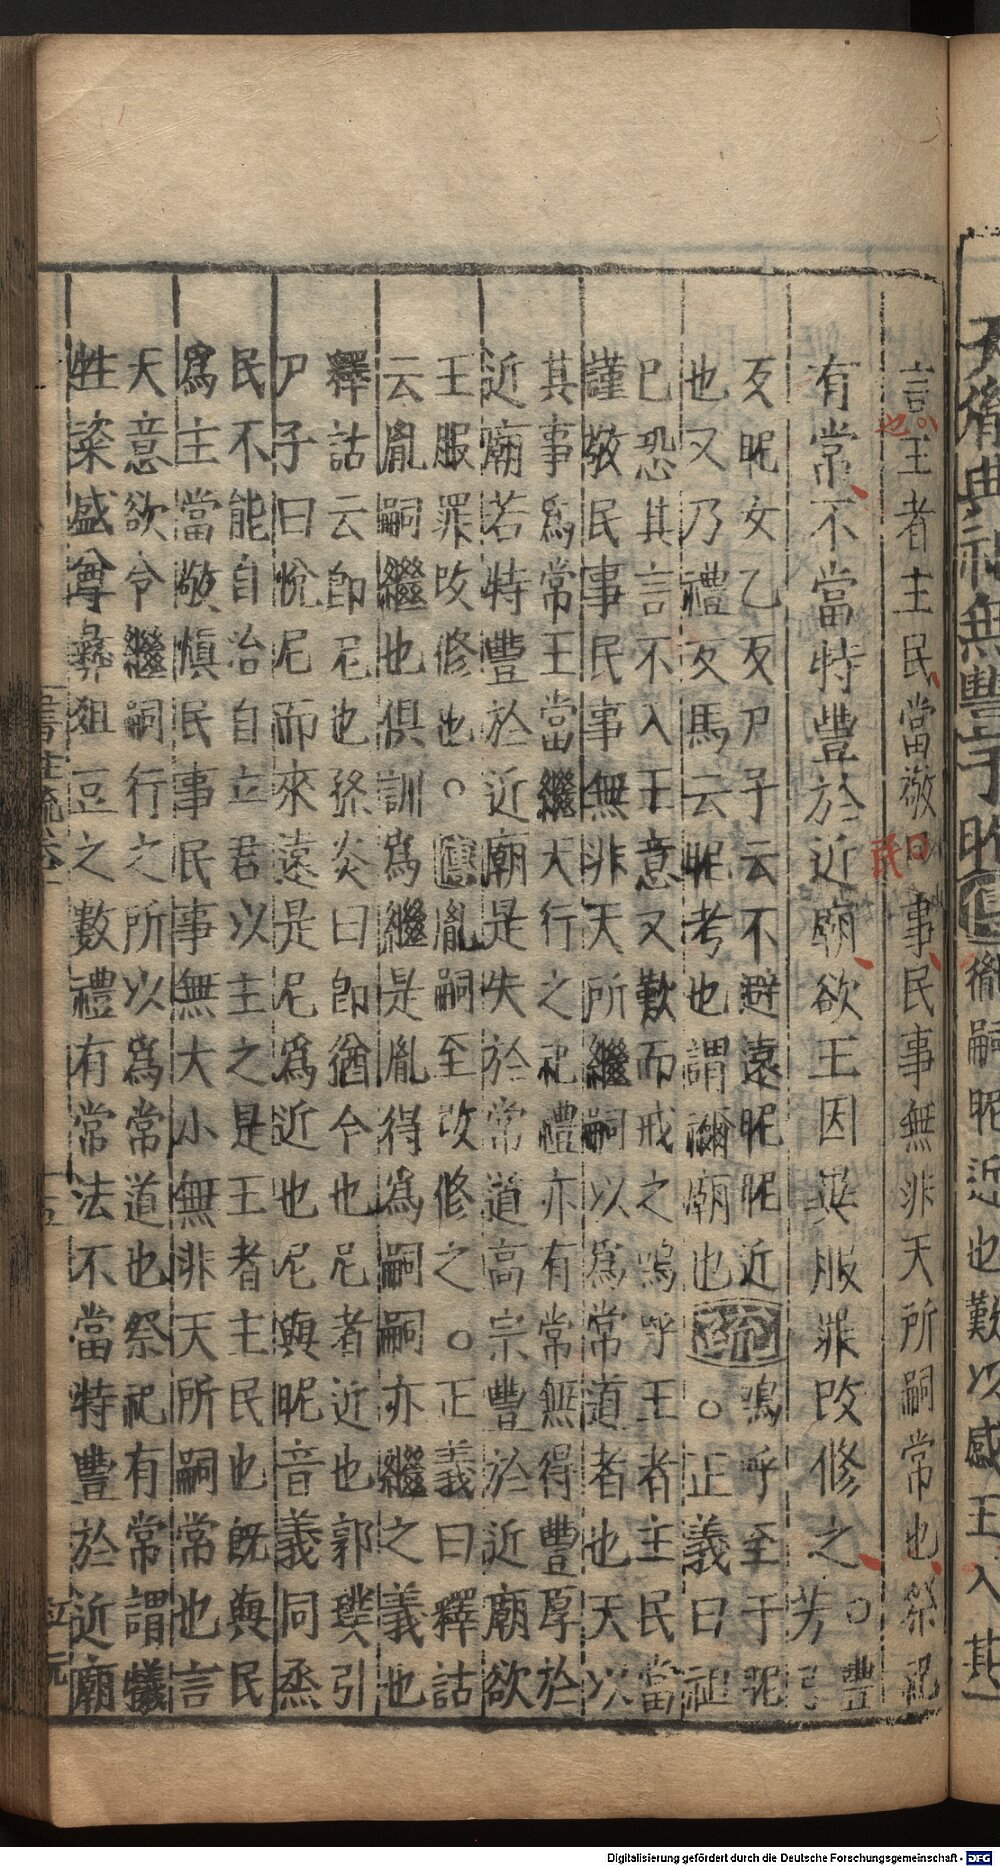 言王者主民當敬民事民事無非天所嗣常也祭祀
有常不當特豐於近廟欲王因異服罪改修之○豐
芳弓
反昵女乙反尸子云不避遠昵昵近嗚呼至于昵
也又乃禮反馬云昵考也謂禰廟也疏○正義曰祖
已恐其言不入王意又歎而戒之嗚呼王者主民當
謹敬民事民事無非天所繼嗣以爲常道者也天以
其事爲常王當繼天行之祀禮亦有常無得豐厚於
近廟若特豐於近廟是失於常道高宗豐於近廟欲
王服罪改修也○傳胤嗣至改修之○正義曰釋詁
云胤嗣繼也俱訓爲繼是胤得爲嗣嗣亦繼之義也
釋詁云即尼也孫炎曰即猶今也尼者近也郭璞引
尸子曰悅尼而來遠是尼爲近也尼與昵音義同烝
民不能自治自立君以主之是王者主民也既與民
爲主當敬慎民事民事無大小無非天所嗣常也言
天意欲令繼嗣行之所以爲常道也祭祀有常謂犧
牲粢盛尊彝俎豆之數禮有常法不當特豐於近廟
也
民
曰
天胤典祀無豐于昵傳胤嗣昵近也歎以感王入其
Digitalisierung gefördert durch die Deutsche Forschungsgemeinschaft - DFG